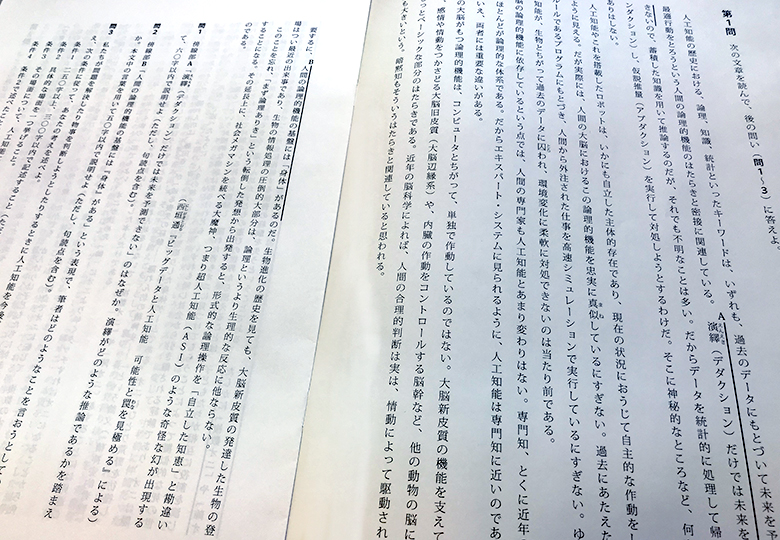 第1問 次の文章を読んで、後の問い(問1～3)に答えよ
人工知能の歴史における、論理、知識、統計といったキーワードは、いずれも、過去のデータにもとづいて未来を予
最適行動をとろうという人間の論理的機能のはたらきと密接に関連している。A演繹(デダクション)だけでは未来を
きないので、蓄積した知識を用いて推論するのだが、それでも不明なことは多い。だからデータを統計的に処理して帰
ンダクション)し、仮説推量(アブダクション)を実行して対処しようとするわけだ。そこに神秘的なところなど、何
ありはしない。
人工知能やこれを搭載したロボットは、いかにも自立した主体的存在であり、現在の状況におうじて自主的な作動をし
ように見える。だが実際には、人間の大脳におけるこの論理的機能を忠実に真似しているにすぎない。過去にあたえた
ルールであるプログラムにもとづき、人間から外注された仕事を高速シミュレーションで実行しているにすぎない。ゆ
知能が、生物とちがって過去のデータに囚われ、環境変化に柔軟に対処できないのは当たり前である。
脳の論理的機能に依存しているという点では、人間の専門家も人工知能とあまり変わりはない。専門知、とくに近年
ほとんどが論理的な体系である。だからエキスパート・システムに見られるように、人工知能は専門知に近いのであ
いえ、両者には重要な違いがある。
の大脳がもつ論理的機能は、コンピュータとちがって、単独で作動しているのではない。大脳新皮質の機能を支えて
、感情や情動をつかさどる大脳旧皮質(大脳辺縁系)や、内臓の作動をコントロールする脳幹など、他の動物の脳に
っとベーシックな部分のはたらきである。近年の脳科学によれば、人間の合理的判断は実は、情動によって駆動され
も大きいという。暗黙知もそういうはたらきと関連していると思われる。
要するに、B人間の論理的機能の基盤には「身体」があるのだ。生物進化の歴史を見ても、大脳新皮質の発達した生物の登
場はつい最近の出来事であり、生物の情報処理の圧倒的大部分は、論理というより生理的な反応に他ならない。
このことを忘れ、「まず論理ありき」という転倒した発想から出発すると、形式的な論理操作を「自立した知恵」と勘違い
することになる。その延長上に、社会メガマシンを統べる大魔神、つまり超人工知能(ASI)のような奇怪な幻が出現する
のである。
(西垣通『ビッグデータと人工知能 可能性と罠を見極める』による)
問1 傍線部A「演繹(デダクション)だけでは未来を予測できない」のはなぜか。演繹がどのような推論であるかを踏まえ
て、六〇字以内で説明せよ(ただし、句読点を含む)。
問2 傍線部B「人間の論理的機能の基盤には『身体』がある」という表現で、筆者はどのようなことを言おうとしてい
か。本文中の言葉を用いて五〇字以内で説明せよ(ただし、句読点を含む)。
問3 私たちが問題を解決したり物事を判断しようとしたりするときに人工知能を今後
え、次の条件に従って、あなたの考えを述べよ。
条件1 二五〇字以上、三〇〇字以内で記述する
条件2 具体的な場面を一つ挙げ、
条件3 その場面で、人工知能
条件2で述べたこと